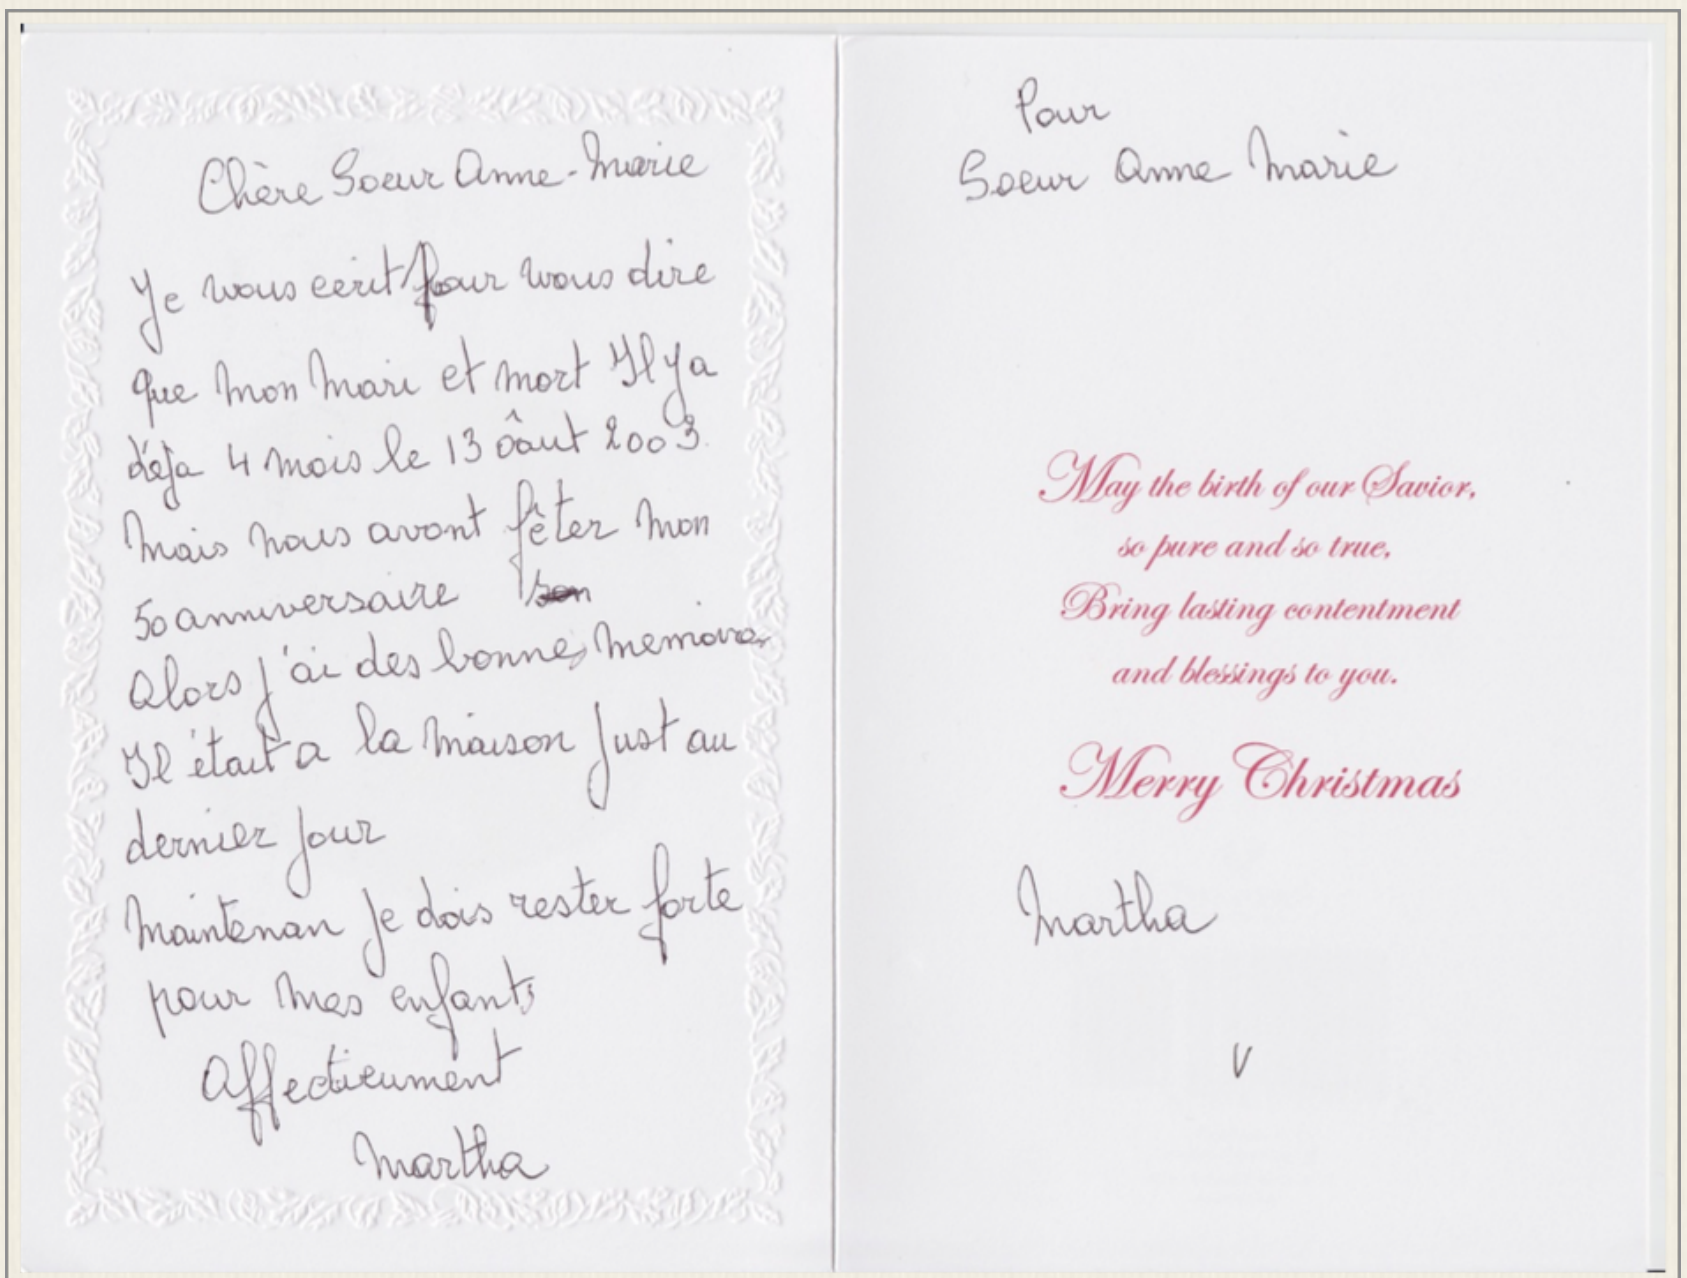 Chère Soeur Anne-Marie
Je vous ecrit pour vous dire
que mon mari et mort Il y a
déja 4 mois le 13 oâut 2003.
Mais nous avont fêter mon
50 anniversaire
Alors j'ai des bonnes memoires
Il était a la maison just au
dernier jour
Maintenan je dois rester forte
pour mes enfants
Affectieument
Martha
Pour
Soeur Anne Marie
May the birth of our Savior,
so pure and so true,
Bring lasting contentment
and blessings to you.
Merry Christmas
Martha
V